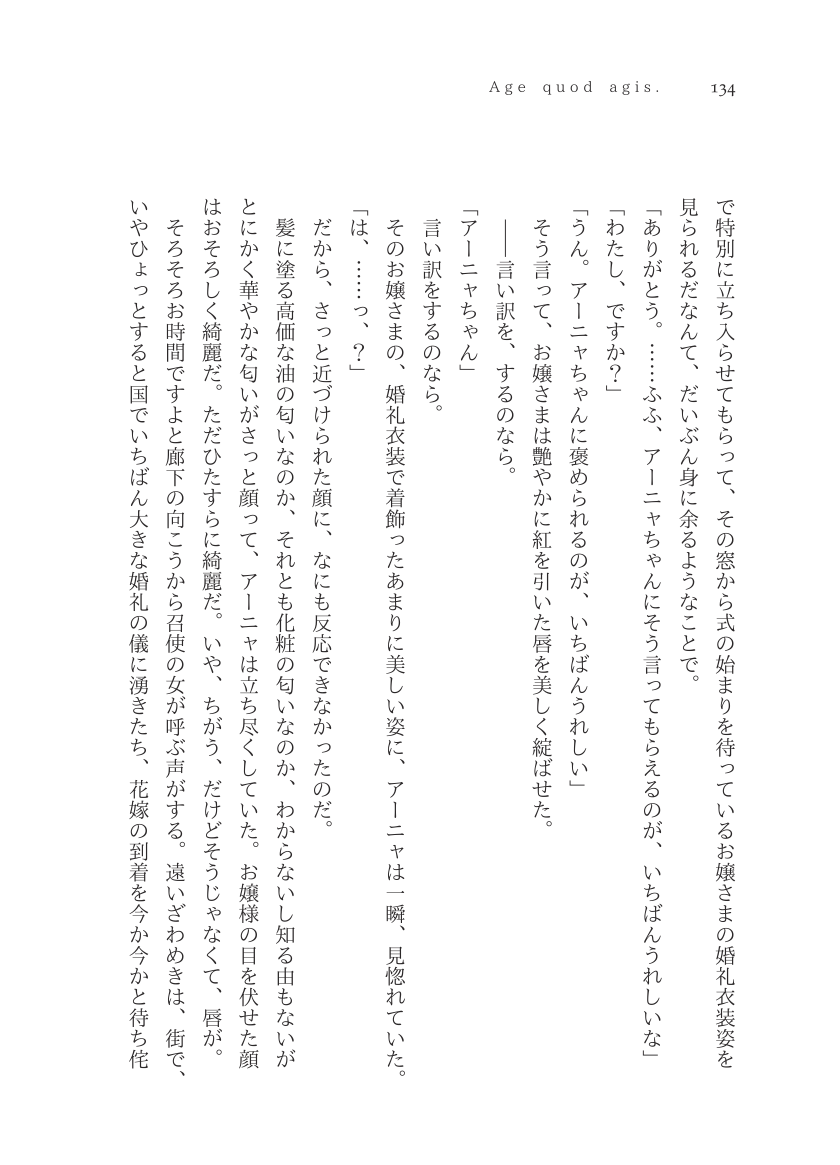 Age quod agis. 134
で特別に立ち入らせてもらって、その窓から式の始まりを待っているお嬢さまの婚礼衣装姿を
見られるだなんて、だいぶん身に余るようなことで。
「ありがとう。……ふふ、アーニャちゃんにそう言ってもらえるのが、いちばんうれしいな」
「わたし、ですか？」
「うん。アーニャちゃんに褒められるのが、いちばんうれしい」
そう言って、お嬢さまは艶やかに紅を引いた唇を美しく綻ばせた。
――言い訳を、するのなら。
「アーニャちゃん」
言い訳をするのなら。
そのお嬢さまの、婚礼衣装で着飾ったあまりに美しい姿に、アーニャは一瞬、見惚れていた。
「は、……っ、？」
だから、さっと近づけられた顔に、なにも反応できなかったのだ。
髪に塗る高価な油の匂いなのか、それとも化粧の匂いなのか、わからないし知る由もないが
とにかく華やかな匂いがさっと顔って、アーニャは立ち尽くしていた。お嬢様の目を伏せた顔
はおそろしく綺麗だ。ただひたすらに綺麗だ。いや、ちがう、だけどそうじゃなくて、唇が。
そろそろお時間ですよと廊下の向こうから召使の女が呼ぶ声がする。遠いざわめきは、街で、
いやひょっとすると国でいちばん大きな婚礼の儀に湧きたち、花嫁の到着を今か今かと待ち侘